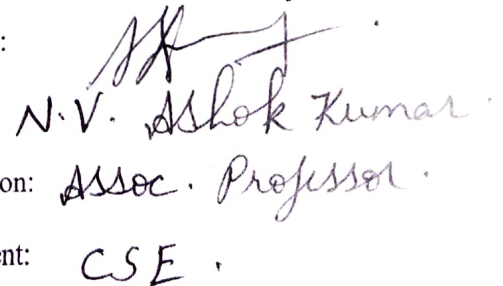 :
N.V. Ashok Kumar.
on: Assoc. Professor.
ent: CSE.